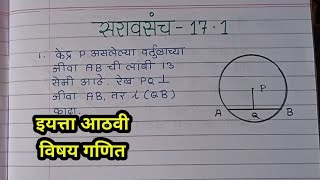 सरावसंच - 17.1
1. केंद्र P असलेल्या वर्तुळाच्या
जीवा AB ची लांबी 13
सेमी आहे. रेख PQ ⊥
जीवा AB, तर l(QB)
काढा.
P
A Q B
इयत्ता आठवी
विषय गणित